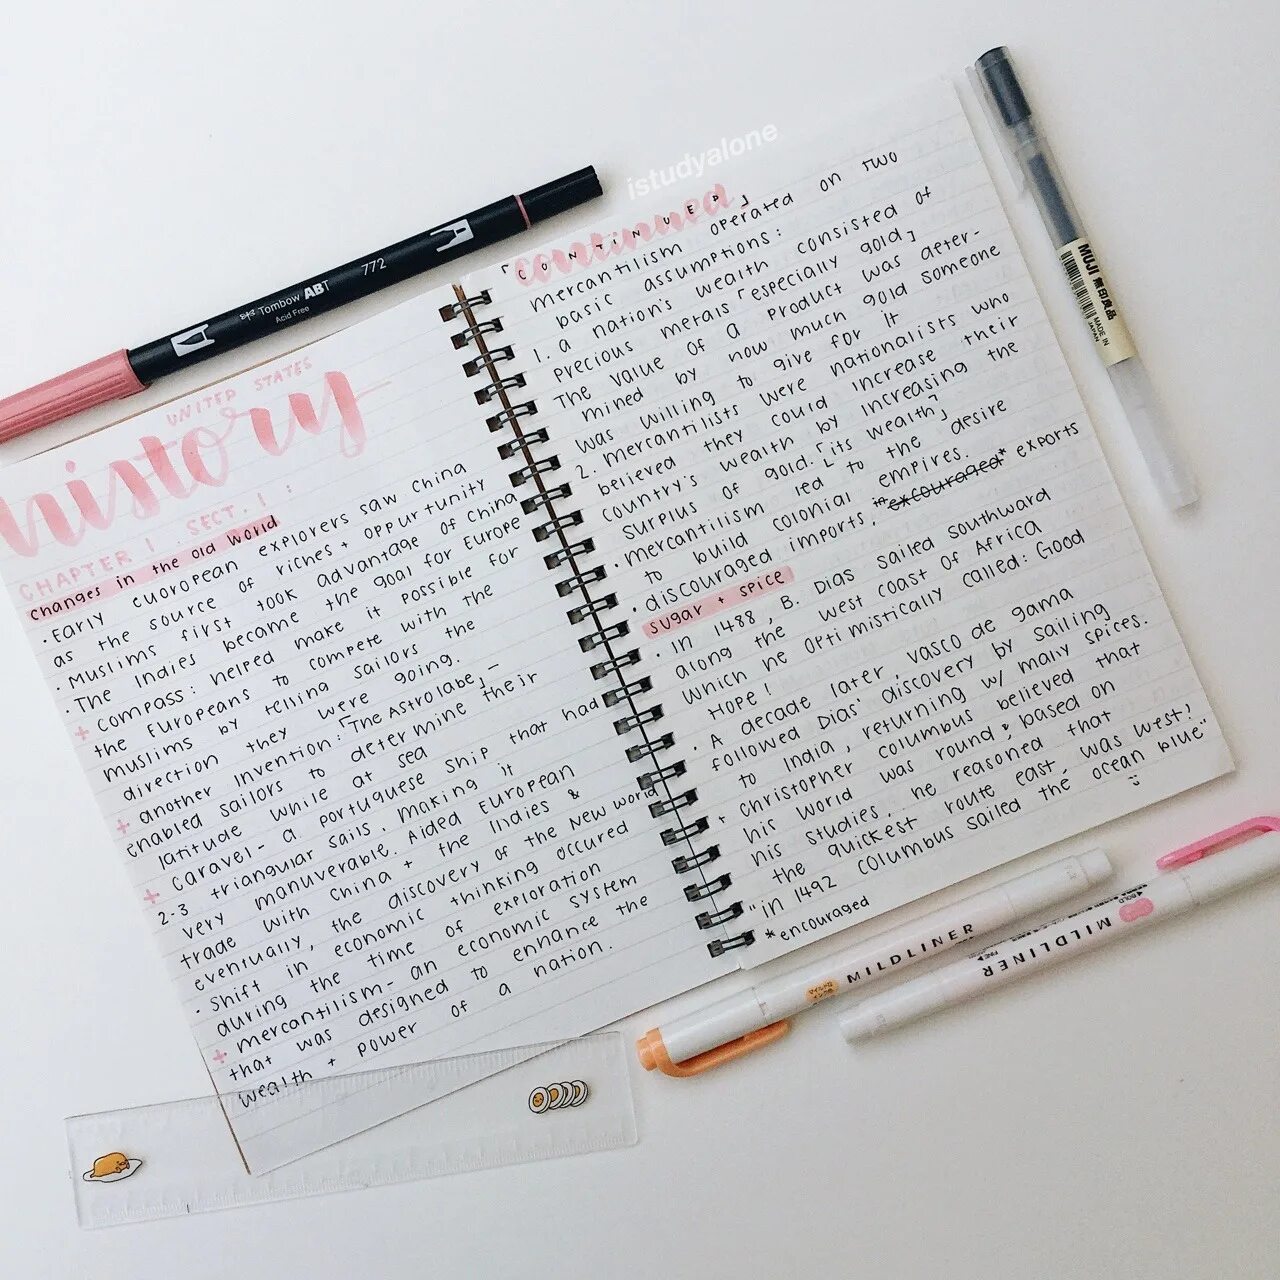 istudyalone
772
Tombow ABT
Acid Free
UNITED STATES
history
CHAPTER 1 SECT. 1 :
changes in the old world
• Early euoropean explorers saw China
as the source of riches + oppurtunity
• Muslims first took advantage of China
• The Indies became the goal for Europe
+ compass: helped make it possible for
the Europeans to compete with the
muslims by telling sailors the
direction they were going.
+ another invention: 「The Astrolabe」-
enabled sailors to determine their
latitude while at sea
+ caravel- a portuguese ship that had
2-3 triangular sails, making it
very manuverable. Aided European
trade with China + the Indies &
eventually, the discovery of the New world
• Shift in economic thinking occured
during the time of exploration
+ mercantilism- an economic system
that was designed to enhance the
wealth + power of a nation.
continued
「CONTINUED」
mercantilism operated on two
basic assumptions:
1. a nation's wealth consisted of
precious metals 「especially gold」
The value of a product was deter-
mined by how much gold someone
was willing to give for it
2. Mercantilists were nationalists who
believed they could increase their
country's wealth by increasing the
surplus of gold. 「its wealth」
• mercantilism led to the desire
to build colonial empires.
• discouraged imports, "excouraged* exports
sugar + spice
• In 1488, B. Dias sailed southward
along the west coast of Africa
which he optimistically called: Good
Hope!
• A decade later, vasco de gama
followed Dias' discovery by sailing
to India, returning w/ many spices.
+ christopher columbus believed that
his world was round, & based on
his studies, he reasoned that
the quickest route east, was west!
"in 1492 columbus sailed the ocean blue"
*encouraged
MUJI 無印良品
MADE IN
JAPAN
MILDLINER
MILDLINER